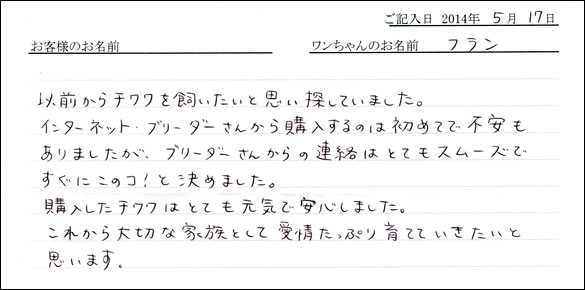 ご記入日 2014年 5月 17日
お客様のお名前 ワンちゃんのお名前 フラン
以前からチワワを飼いたいと思い探していました。
インターネット・ブリーダーさんから購入するのは初めてで不安も
ありましたが、ブリーダーさんからの連絡はとてもスムーズで
すぐにこのコ!と決めました。
購入したチワワはとても元気で安心しました。
これから大切な家族として愛情たっぷり育てていきたいと
思います。